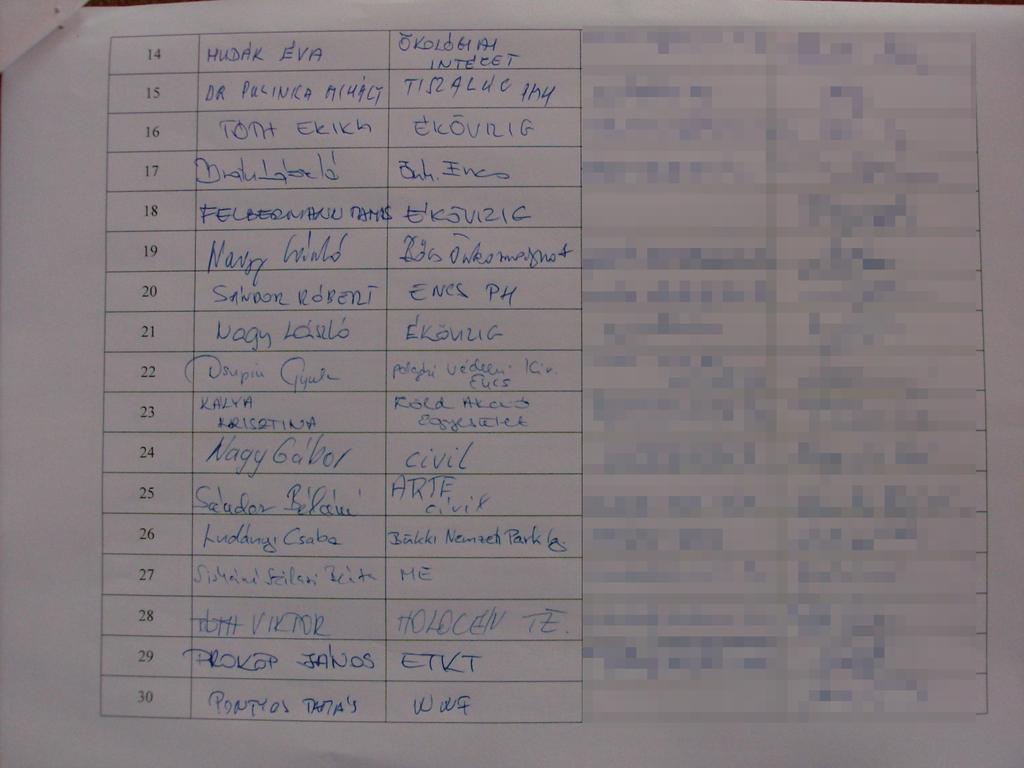 14 HUDÁK ÉVA ÖKOLÓGIAI
INTÉZET
15 DR PULINKA MIHÁLY TISZALÚC PMH
16 TÓTH ERIKA ÉKÖVIZIG
17 László Önk. Encs
18 TAMÁS ÉKÖVIZIG
19 Nagy Önkormányzat
20 SÁNDOR RÓBERT ENCS PH
21 Nagy László ÉKÖVIZIG
22 Gyula polgári védelmi Kir.
Encs
23 KALYA Akció
KRISZTINA Egyesület
24 Nagy Gábor civil
25 Sándor Béláné ARTE
civil
26 Ludányi Csaba Bükki Nemzeti Park Ig.
27 Szilasi Beáta ME
28 TÓTH VIKTOR HOLOCÉN TE.
29 PROKOP JÁNOS ETKT
30 TAMÁS WWF